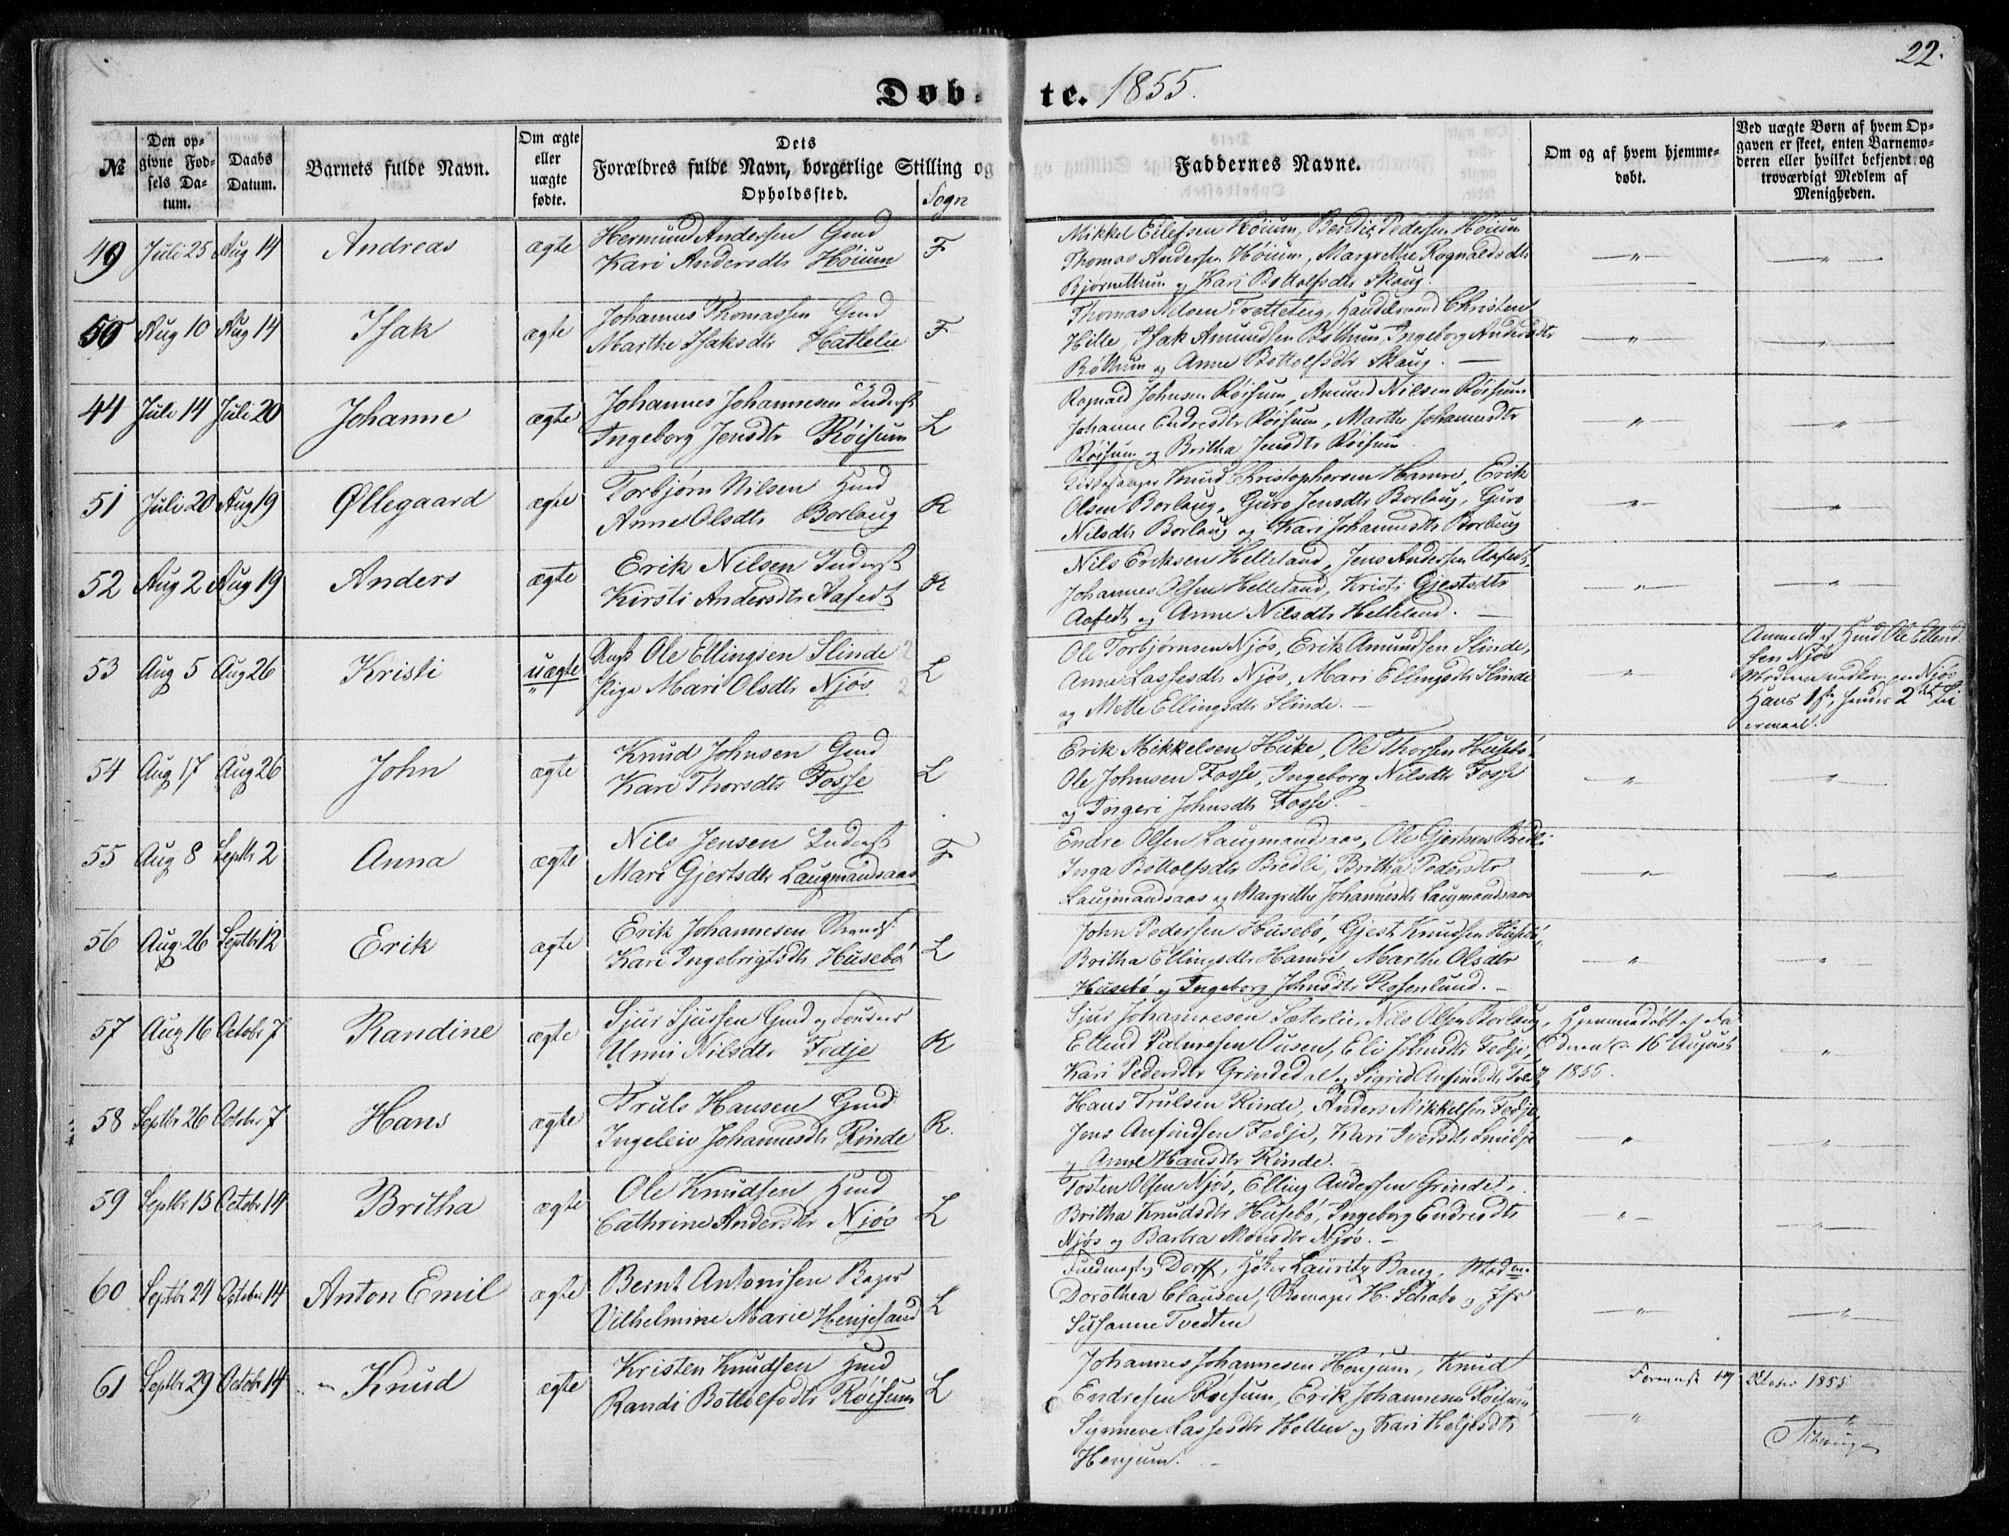 22.
Døbte. 1855.
№
Den opgivne Fødsels Datum.
Daabs Datum.
Barnets fulde Navn.
Om ægte eller uægte fødte.
Dets Forældres fulde Navn, borgerlige Stilling og Opholdssted.
Sogn
Faddernes Navne.
Om og af hvem hjemmedøbt.
Ved uægte Børn af hvem Opgaven er skeet, enten Barnemoderen eller hvilket bekjendt og troværdigt Medlem af Menigheden.
49 Juli 25 Aug 14 Andreas ægte
Hermund Andersen Gmd
Kari Andersdtr Høium F
Mikkel Eilefsen Høium, Bendix Pedersen Høium
Thomas Andersen Høium, Margrethe Rognaldsdtr
og Kari Bottolfsdtr Skaug.
50 Aug 10 Aug 14 Isak ægte
Johannes Thomassen Gmd
Marthe Isaksdtr Hattelie F
Thomas Nilsen Trotteteig, Handelsmand Christen
Hille, Isak Amundsen Røttum, Ingeborg Andersdtr
Røttum og Anne Bottolfsdtr Skaug.
44 Juli 14 Juli 20 Johanne ægte
Johannes Johannesen Inderst
Ingeborg Jensdtr Røisum L
Rognald Johnsen Røisum, Amund Nilsen Røisum
Johanne Endresdtr Røisum, Marthe Johannesdtr
Røisum og Britha Jensdtr Røisum
51 Juli 20 Aug 19 Øllegaard ægte
Torbjørn Nilsen Hmd
Anne Olsdtr Borlaug R
Knud Christophersen Hamre, Erik
Olsen Borlaug, Guro Jensdtr Borlaug, Guro
Nilsdtr Borlaug og Kari Johannesdtr Borlaug
52 Aug 2 Aug 19 Anders ægte
Erik Nilsen Inderst
Kirsti Andersdtr Aafedt R
Nils Eriksen Helleland, Jens Andersen Aafedt,
Johannes Olsen Helleland, Kristi Gjestsdtr
Aafedt og Anne Nilsdtr Helleland.
53 Aug 5 Aug 26 Kristi uægte
Ungk Ole Ellingsen Slinde 2
Pige Mari Olsdtr Njøs 2 L
Ole Torbjørnsen Njøs, Erik Amundsen Slinde,
Anne Lassesdtr Njøs, Mari Ellingsdtr Slinde
og Mette Ellingsdtr Slinde.
Anmeldt af Hmd Ole Ellend
sen Njøs
Njøs
Hans 1ste, hendes 2det Lei
ermaal.
54 Aug 17 Aug 26 John ægte
Knud Johnsen Gmd
Kari Thorsdtr Fosse L
Erik Mikkelsen Huke, Ole Thorsen Husebø
Ole Johnsen Fosse, Ingeborg Nilsdtr Fosse
og Ingeri Johnsdtr Fosse.
55 Aug 8 Septbr 2 Anna ægte
Nils Jensen Inderst
Mari Gjertsdtr Laugmandsaas F
Endre Olsen Laugmandsaas, Ole Gjertsen Bredli
Inga Bottolfsdtr Bredli, Britha Pedersdtr
Laugmandsaas og Margrethe Johannesdtr Laugmandsaas
56 Aug 26 Septbr 12 Erik ægte
Erik Johannesen Strands.
Kari Ingebrigtsdtr Husebø L
John Pedersen Husebø, Gjest Knudsen Husebø,
Britha Ellingsdtr Hamre Marthe Olsdtr
Husebø og Ingeborg Johnsdtr Rosenlund.
57 Aug 16 Octobr 7 Randine ægte
Sjur Sjursen Gmd og
Unni Nilsdtr Fedje R
Sjur Johannesen Sæterlie, Nils Olsen Borlaug,
Ellend Palmesen Ousen, Eli Johnsdtr Fedje,
Kari Pedersdtr Grindedal og Sigrid Anfindsdtr
Hjemmedøbt af Fa
deren den 16 August
1855.
58 Septbr 26 October 7 Hans ægte
Truls Hansen Gmd
Ingeleiv Johannesdtr Rinde R.
Hans Trulsen Rinde, Anders Mikkelsen Fedje,
Jens Anfindsen Fedje, Kari Iversdtr
og Anne Hansdtr Rinde.
59 Septbr 15 Octobr 14 Britha ægte
Ole Knudsen Hmd
Cathrine Andersdtr Njøs L
Tosten Olsen Njøs, Elling Andersen Grinde,
Britha Knudsdtr Husebø, Ingeborg Endresdtr
Njøs og Barba Monsdtr Njøs.
60 Septbr 24 October 14 Anton Emil ægte
Bernt Antonisen Bager
Vilhelmine Marie Henjesand L
Dorff, Lauritz Bang, Mad
Dorothea Clausen, H. Schabo og Jfr
Susanne Tvedten
61 Septbr 29 Octobr 14 Knud ægte
Kristen Knudsen Hmd
Randi Bottolfsdtr Røisum L
Johannes Johannesen Henjum, Knud
Endresen Røisum, Erik Johannesen Røisum,
Synneve Lassesdtr Hollen og Kari Heljesdtr
Henjum.
17 October 1855